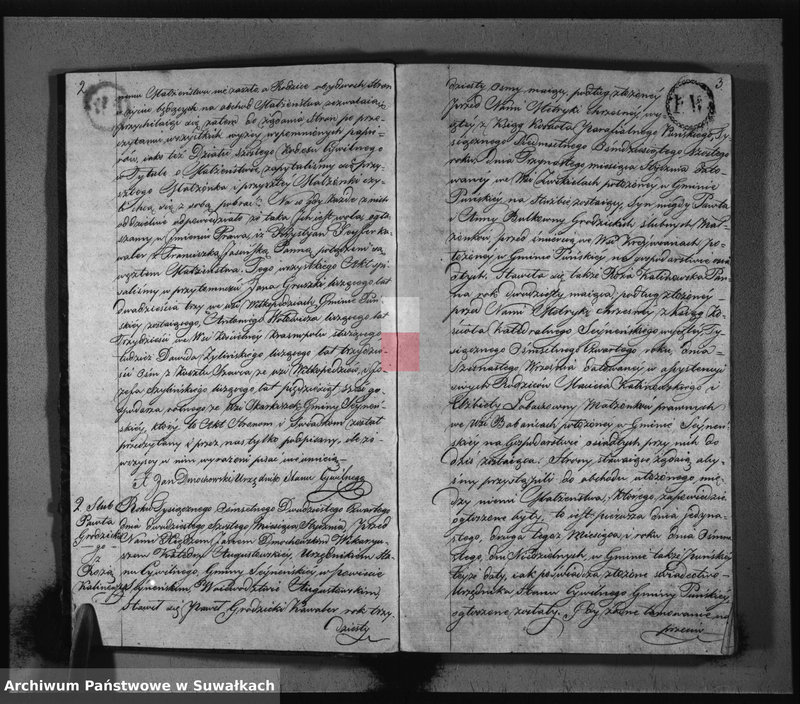 2
temu Małżeństwu nie zaszło a Rodzice obydwoch Stron
żywie będących na obchod Małżeństwa zezwalaią,
przychilaiąc się zatem do żądania Stron po prze-
czytaniu wszystkich wyżey wspomnionych papie-
row, iako też Działu szóstego Kodexu Cywilnego
w Tytule o Małżeństwie, zapytaliśmy się przy-
szłego Małżonka i przyszłey Małżonki czy-
li chcą się z sobą pobrać? Na co gdy każde z nich
oddzielnie odpowiedziało że taka ich iest wola, ogła-
szamy w Jmieniu Prawa, iż Krystyan Ka-
waler i Franciszka Panna, połączeni są
węzłem Małżeństwa. Tego wszystkiego Akt spi-
saliśmy w przytomności Jana Gruszki liczącego lat
dwadzieścia trzy we wsi Gminie
zostaiącego, Antoniego liczącego lat
Trzydzieści we Wsi
tudzież Dawida liczącego lat trzydzie-
ści we wsi i Jó-
zefa liczącego lat pięćdziesiąt sześć go-
spodarza, ze Wsi Gminy Seyneń-
skiey, który to Akt Stronom i Świadkom został
przeczytany i przez nas tylko podpisany, bo
wszyscy w nim wyrażeni pisać nie umieią. —
X. Jan Dmochowski Urzędnik Stanu Cywilnego
2. Slub
Pawła
Grodzickie-
go
z
Rozą
Kalinewską
Roku Tysiącznego Ośmsetnego Dwudziestego Czwartego
dnia dwudziestego szóstego Miesiąca Stycznia. Przed
Nami Xiędzem Janem Dmochowskim Wikaryu-
szem Katedry Augustowskiey, Urzędnikiem Sta-
nu Cywilnego, Gminy Seyneńskiey, w Powiecie
Seyneńskim, Woiewództwie Augustowskim,
Stawił się Paweł Grodzicki Kawaler rok trzy-
dziesty
3
dziesty osmy maiący, podług złożoney
przed Nami Metryki Chrzestney, wy-
iętey z Xiąg Kościoła Parafialnego Puńskiego, Ty-
siącznego Siedmsetnego Ośmdziesiątego Szostego
roku, dnia miesiąca Stycznia dato-
waney we Wsi położoney w Gminie
Puńskiey na służbie zostaiący, Syn niegdy Pawła
i Anny Grodzickich slubnych Mał-
żonków, przed śmiercią we Wsi po-
łożoney w Gminie Puńskiey na gospodarstwie osia-
dłych. Stawiła się także Roża Kalinewska Pan-
na rok dwudziesty maiąca, podług złożoney
przed Nami Metryki chrzesney, z Xiąg Ko-
ścioła Katedralnego Seyneńskiego wyiętey, Ty-
siącznego Ośmsetnego Czwartego roku, dnia
Szesnastego Września datowaney w assystencyi
swych Rodziców Macieia Kalinewskiego i
Elżbiety Małżonków prawnych
we Wsi Babańcach położoney w Gminie Seyneń-
skiey na Gospodarstwie osiadłych przy nich do
dziś zostaiąca. Strony stawaiące żądaią aby-
śmy przystąpili do obchodu ułożonego mię-
dzy niemi Małżeństwa, którego zapowiedzie
ogłoszone były: to iest: pierwsza dnia iedyna-
stego, druga tegoż Miesiąca i roku dnia Ośmna-
stego, dni Niedzielnych, w Gminie także Puńskiey
teyże daty, iak poświadcza złożone świadectwo
Urzędnika Stanu Cywilnego Gminy Puńskiey
ogłoszone zostały. Gdy żadne tamowanie na
przeciw
Archiwum Państwowe w Suwałkach